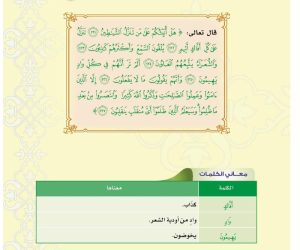 قال تعالى: ﴿ هَلْ أُنَبِّئُكُمْ عَلَىٰ مَن تَنَزَّلُ ٱلشَّيَٰطِينُ ﴿٢٢١﴾ تَنَزَّلُ
عَلَىٰ كُلِّ أَفَّاكٍ أَثِيمٍ ﴿٢٢٢﴾ يُلْقُونَ ٱلسَّمْعَ وَأَكْثَرُهُمْ كَٰذِبُونَ ﴿٢٢٣﴾
وَٱلشُّعَرَآءُ يَتَّبِعُهُمُ ٱلْغَاوُۥنَ ﴿٢٢٤﴾ أَلَمْ تَرَ أَنَّهُمْ فِى كُلِّ وَادٍ
يَهِيمُونَ ﴿٢٢٥﴾ وَأَنَّهُمْ يَقُولُونَ مَا لَا يَفْعَلُونَ ﴿٢٢٦﴾ إِلَّا ٱلَّذِينَ
ءَامَنُوا۟ وَعَمِلُوا۟ ٱلصَّٰلِحَٰتِ وَذَكَرُوا۟ ٱللَّهَ كَثِيرًا وَٱنتَصَرُوا۟ مِنۢ بَعْدِ
مَا ظُلِمُوا۟ وَسَيَعْلَمُ ٱلَّذِينَ ظَلَمُوٓا۟ أَىَّ مُنقَلَبٍ يَنقَلِبُونَ ﴿٢٢٧﴾ ﴾
معاني الكلمات
الكلمة معناها
أَفَّاكٍ كذاب.
وَادٍ وادٍ من أودية الشعر.
يَهِيمُونَ يخوضون.